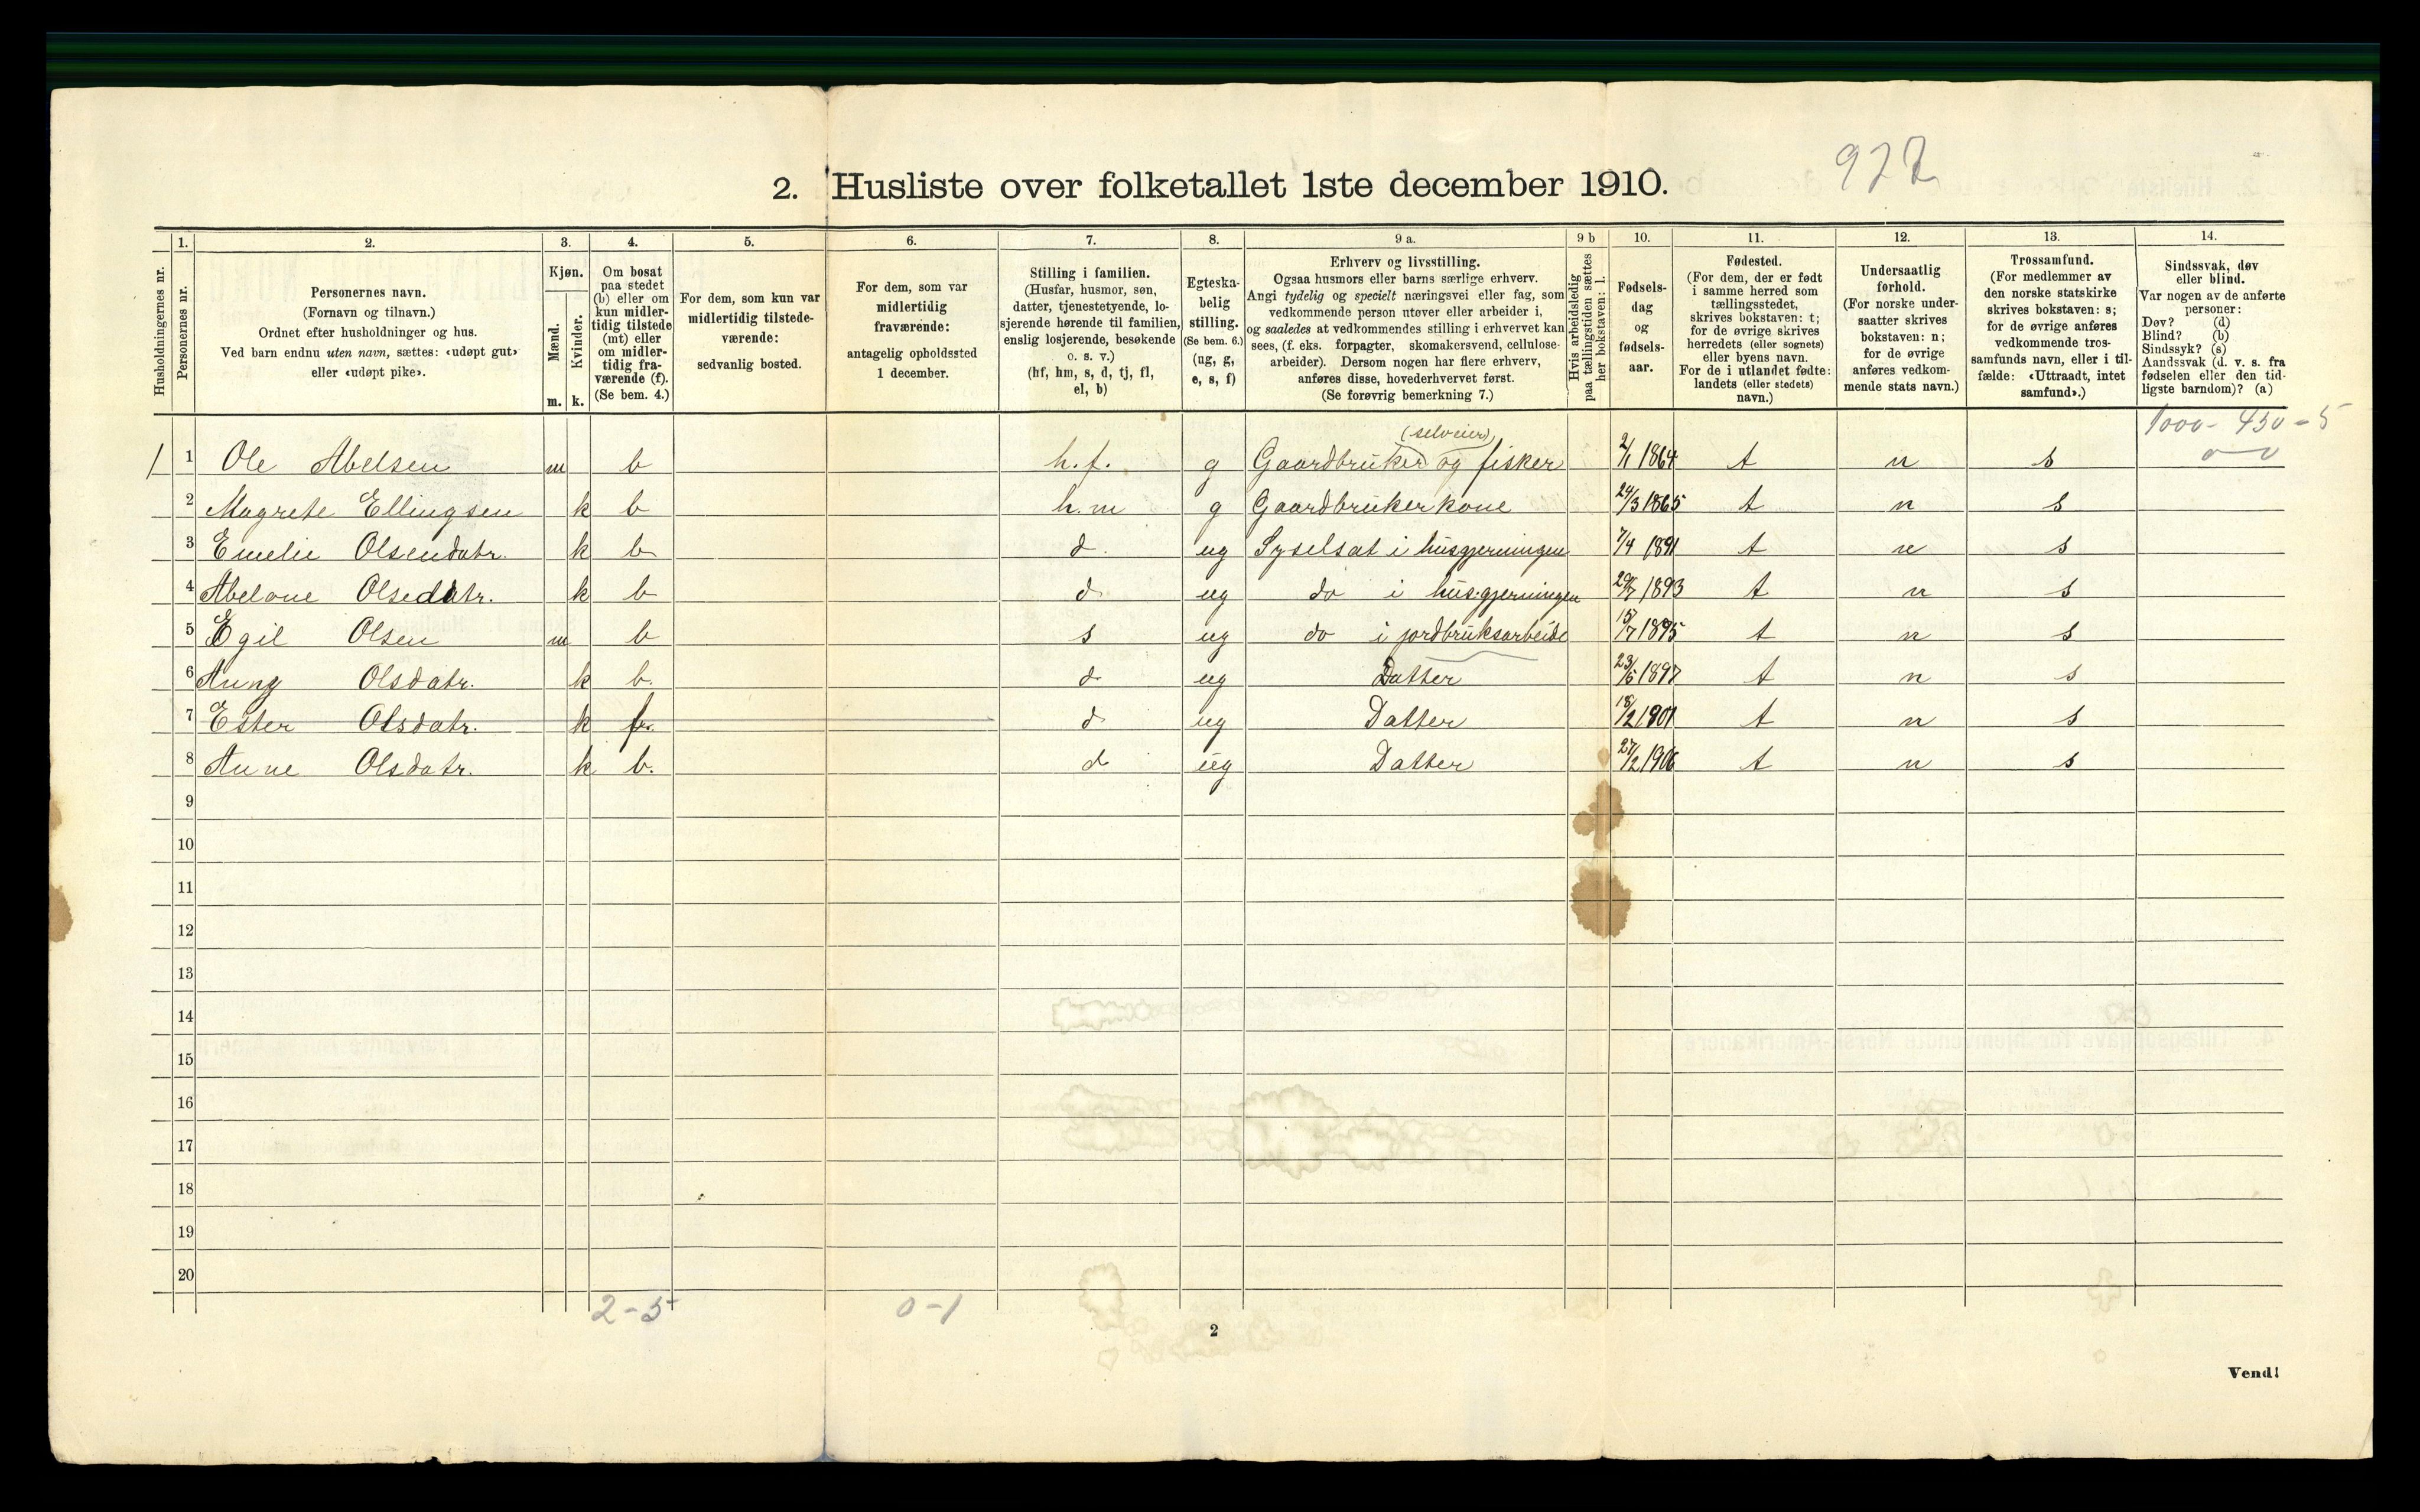 922
2. Husliste over folketallet 1ste december 1910.
Husholdningernes nr.
1.
Personernes nr.
2.
Personernes navn.
(Fornavn og tilnavn.)
Ordnet efter husholdninger og hus.
Ved barn endnu uten navn, sættes: «udøpt gut»
eller «udøpt pike».
3.
Kjøn.
Mænd.
Kvinder.
m. k.
4.
Om bosat
paa stedet
(b) eller om
kun midler-
tidig tilstede
(mt) eller
om midler-
tidig fra-
værende (f).
(Se bem. 4.)
5.
For dem, som kun var
midlertidig tilstede-
værende:
sedvanlig bosted.
6.
For dem, som var
midlertidig
fraværende:
antagelig opholdssted
1 december.
7.
Stilling i familien.
(Husfar, husmor, søn,
datter, tjenestetyende, lo-
sjerende hørende til familien,
enslig losjerende, besøkende
o. s. v.)
(hf, hm, s, d, tj, fl,
el, b)
8.
Egteska-
belig
stilling.
(Se bem. 6.)
(ug, g,
e, s, f)
9 a.
Erhverv og livsstilling.
Ogsaa husmors eller barns særlige erhverv.
Angi tydelig og specielt næringsvei eller fag, som
vedkommende person utøver eller arbeider i,
og saaledes at vedkommendes stilling i erhvervet kan
sees, (f. eks. forpagter, skomakersvend, cellulose-
arbeider). Dersom nogen har flere erhverv,
anføres disse, hovederhvervet først.
(Se forøvrig bemerkning 7.)
9 b
Hvis arbeidsledig
paa tællingstiden sættes
her bokstaven: l.
10.
Fødsels-
dag
og
fødsels-
aar.
11.
Fødested.
(For dem, der er født
i samme herred som
tællingsstedet,
skrives bokstaven: t;
for de øvrige skrives
herredets (eller sognets)
eller byens navn.
For de i utlandet fødte:
landets (eller stedets)
navn.)
12.
Undersaatlig
forhold.
(For norske under-
saatter skrives
bokstaven: n;
for de øvrige
anføres vedkom-
mende stats navn.)
13.
Trossamfund.
(For medlemmer av
den norske statskirke
skrives bokstaven: s;
for de øvrige anføres
vedkommende tros-
samfunds navn, eller i til-
fælde: «Uttraadt, intet
samfund».)
14.
Sindssvak, døv
eller blind.
Var nogen av de anførte
personer:
Døv? (d)
Blind? (b)
Sindssyk? (s)
Aandssvak (d. v. s. fra
fødselen eller den tid-
ligste barndom)? (a)
1000 - 450 - 5
0 - 0
(selveier)
1 1 Ole Abelsen m b h.f. g Gaardbruker og fisker 2/1 1864 t n s
2 Magrete Ellingsen k b h.m g Gaardbrukerkone 24/3 1865 t n s
3 Emelie Olsendatr. k b d. ug Syselsat i husgjerningen 7/4 1891 t n s
4 Abelone Olsedatr. k b d ug do i husgjerningen 1893 t n s
5 Egil Olsen m b s ug do i jordbruksarbeide 15/7 1895 t n s
6 Auny Olsdatr. k b. d ug Datter 23/5 1897 t n s
7 Ester Olsdatr. k f. d ug Datter 18/2 1901 t n s
8 Anne Olsdatr. k b. d ug Datter 27/2 1906 t n s
9
10
11
12
13
14
15
16
17
18
19
20
2 - 5
0 - 1
2
Vend!